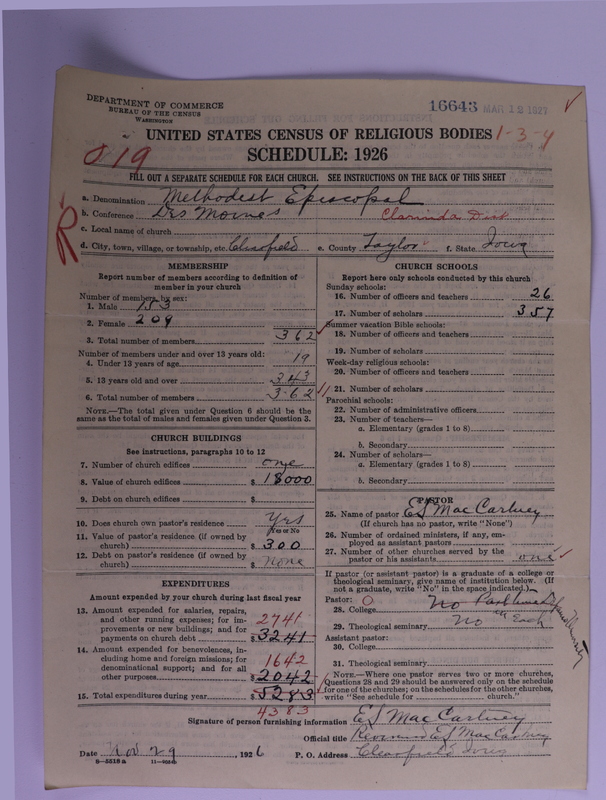 DEPARTMENT OF COMMERCE
BUREAU OF THE CENSUS
WASHINGTON
16643 MAR 12 1927
UNITED STATES CENSUS OF RELIGIOUS BODIES 1-3-4
819
SCHEDULE: 1926
FILL OUT A SEPARATE SCHEDULE FOR EACH CHURCH. SEE INSTRUCTIONS ON THE BACK OF THIS SHEET
a. Denomination Methodest Episcopal
b. Conference Des Moines Clarinda Dist
c. Local name of church
d. City, town, village, or township, etc. Clearfield e. County Taylor f. State Iowa
MEMBERSHIP
Report number of members according to definition of
member in your church
Number of members by sex:
1. Male 153
2. Female 209
3. Total number of members 362
Number of members under and over 13 years old:
4. Under 13 years of age 19
5. 13 years old and over 343
6. Total number of members 362
NOTE.—The total given under Question 6 should be the
same as the total of males and females given under Question 3.
CHURCH BUILDINGS
See instructions, paragraphs 10 to 12
7. Number of church edifices one
8. Value of church edifices $ 18000
9. Debt on church edifices $
10. Does church own pastor's residence Yes
Yes or No
11. Value of pastor's residence (if owned by
church) $ 300
12. Debt on pastor's residence (if owned by
church) $ None
EXPENDITURES
Amount expended by your church during last fiscal year
13. Amount expended for salaries, repairs,
and other running expenses; for im-
provements or new buildings; and for
payments on church debt 2741 $ 3241
14. Amount expended for benevolences, in-
cluding home and foreign missions; for
denominational support; and for all
other purposes 1642 $ 2042
15. Total expenditures during year $ 5283
4383
CHURCH SCHOOLS
Report here only schools conducted by this church
Sunday schools:
16. Number of officers and teachers 26
17. Number of scholars 357
Summer vacation Bible schools:
18. Number of officers and teachers
19. Number of scholars
Week-day religious schools:
20. Number of officers and teachers
21. Number of scholars
Parochial schools:
22. Number of administrative officers
23. Number of teachers—
a. Elementary (grades 1 to 8)
b. Secondary
24. Number of scholars—
a. Elementary (grades 1 to 8)
b. Secondary
PASTOR
25. Name of pastor E S Mac Cartney
(If church has no pastor, write "None")
26. Number of ordained ministers, if any, em-
ployed as assistant pastors
27. Number of other churches served by the
pastor or his assistants one
If pastor (or assistant pastor) is a graduate of a college or
theological seminary, give name of institution below. (If
not a graduate, write "No" in the space indicated.)
Pastor: 0
28. College No
29. Theological seminary No in Each
Assistant pastor:
30. College
31. Theological seminary
NOTE.—Where one pastor serves two or more churches,
Questions 28 and 29 should be answered only on the schedule
for one of the churches; on the schedules for the other churches,
write "See schedule for church."
Signature of person furnishing information E S Mac Cartney
Official title Reverend E S Mac Cartney
Date Nov 29, 1926 P. O. Address Clearfield Iowa
8—5518a